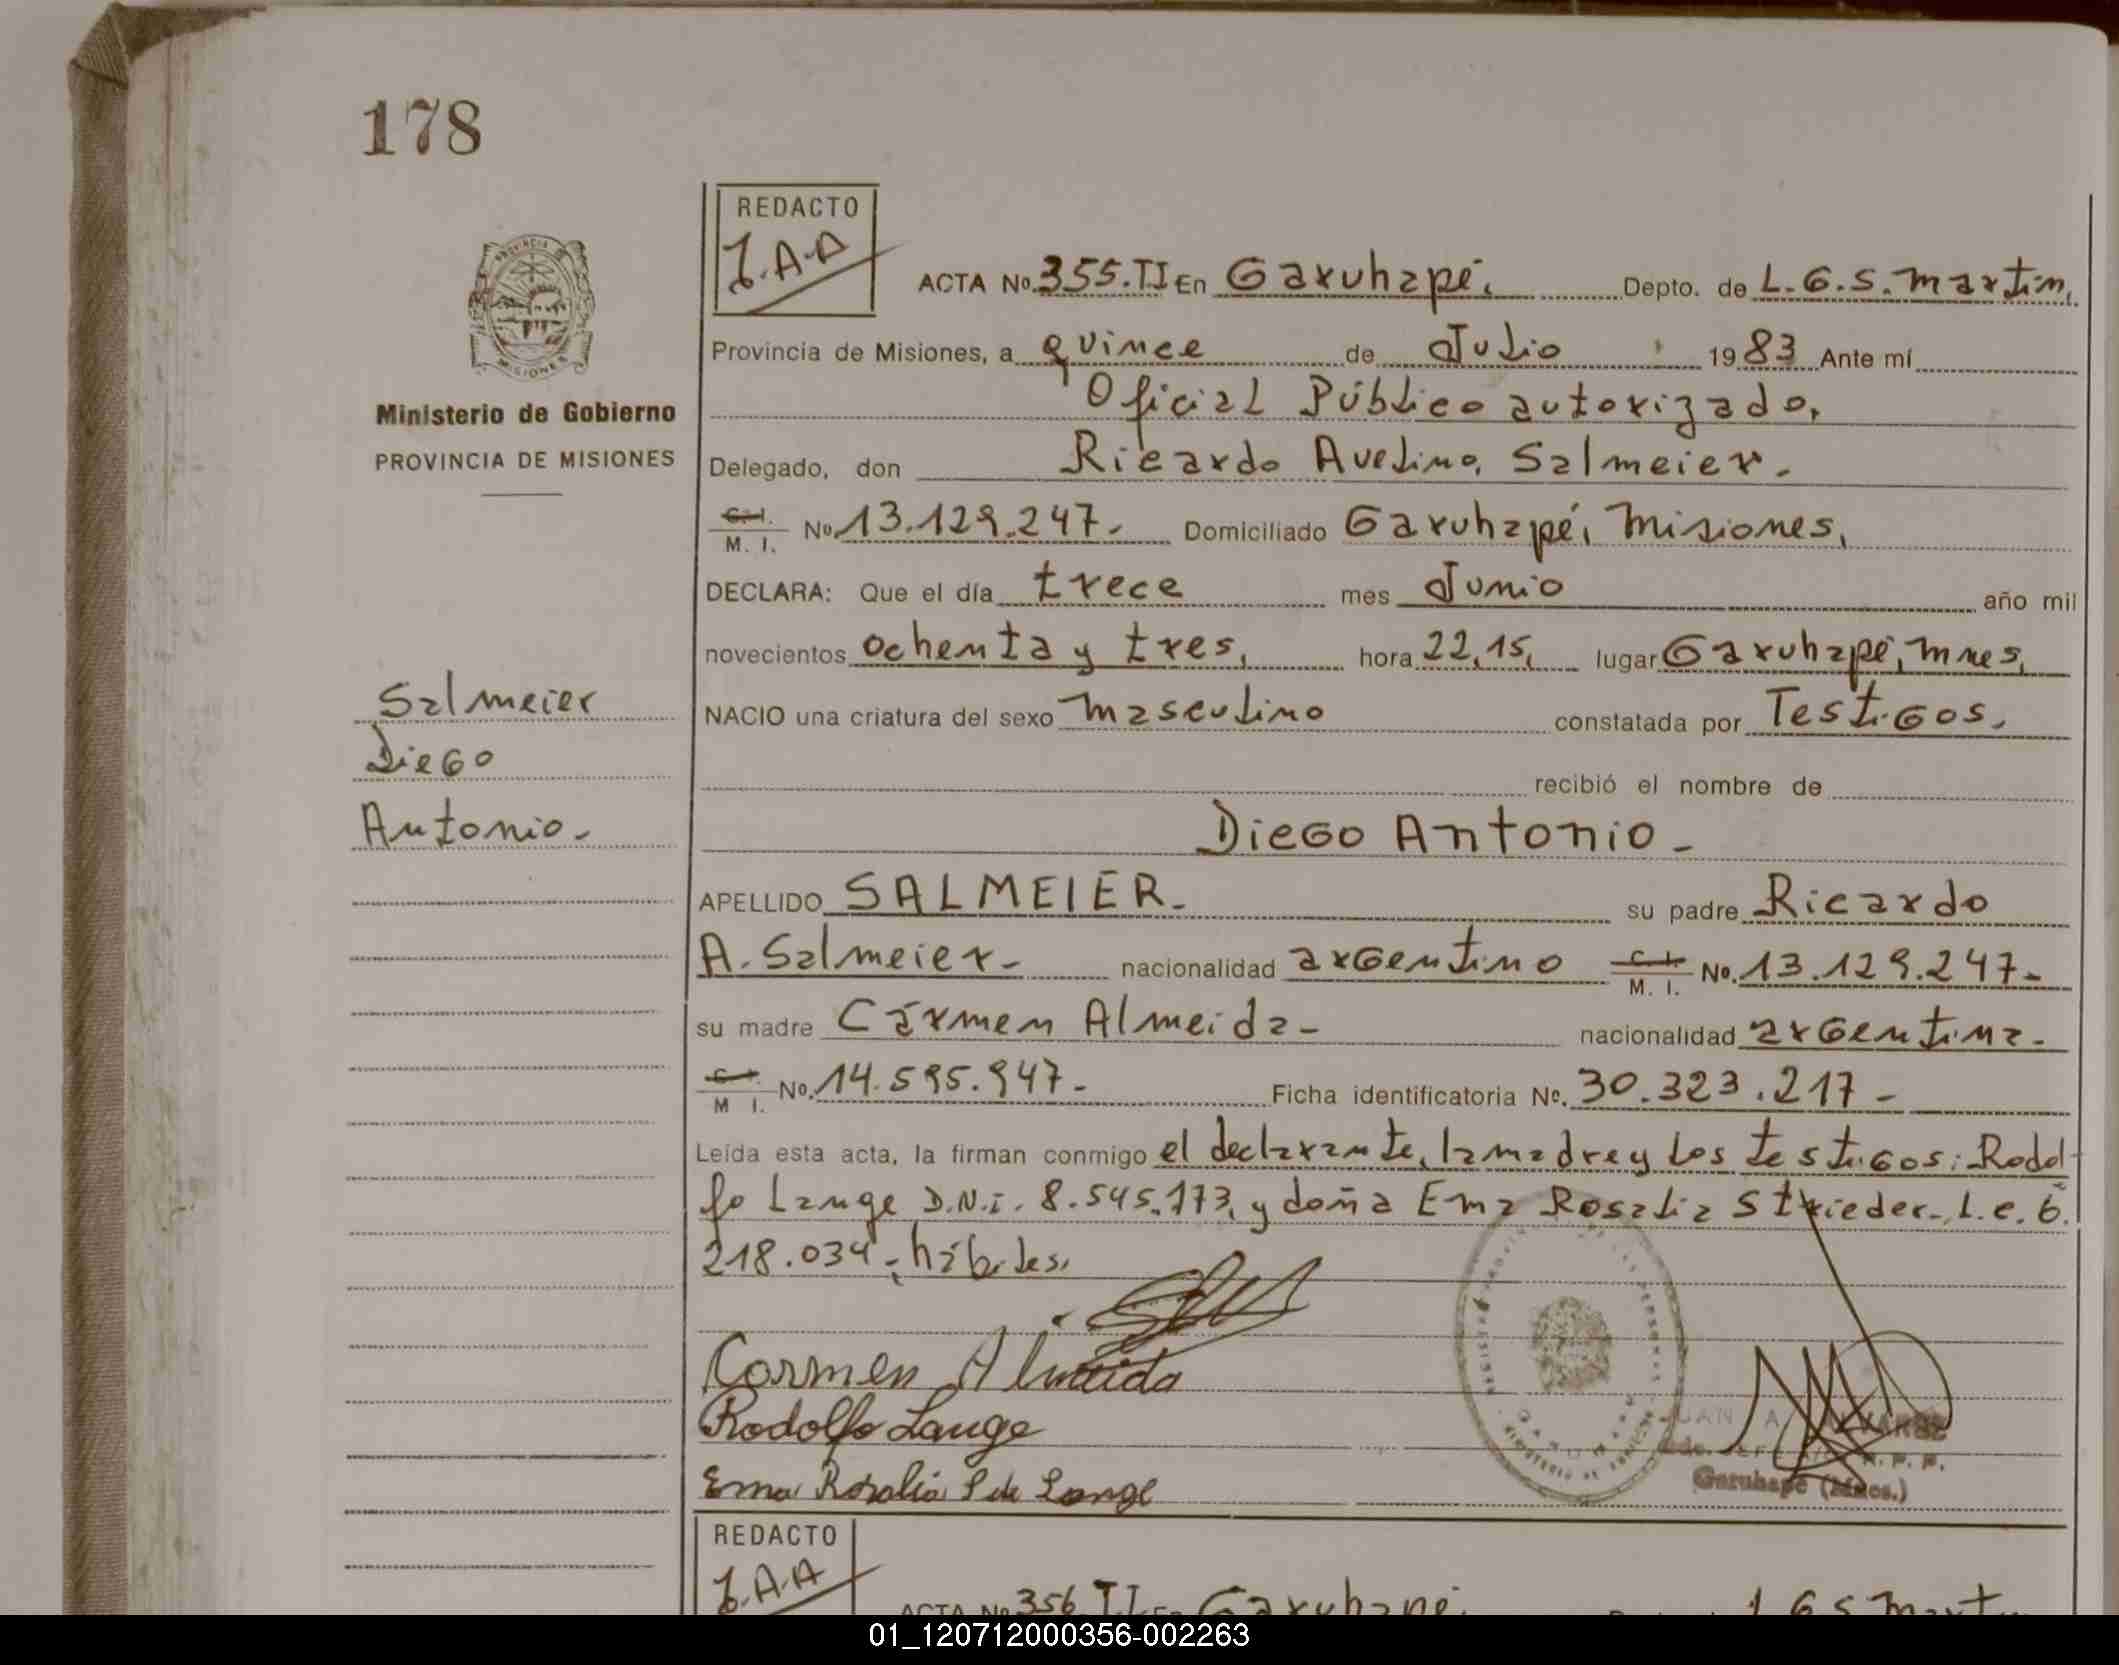 178
REDACTO
J.A.A
ACTA No. 355.II En Garuhapé. Depto. de L.G.S. Martin,
Provincia de Misiones, a quince de Julio 1983 Ante mí
Oficial Público autorizado,
Ministerio de Gobierno
PROVINCIA DE MISIONES
Delegado, don Ricardo Avelino, Salmeier.
C. I. M. I. No. 13.129.247.- Domiciliado Garuhapé, Misiones,
DECLARA: Que el día trece mes Junio año mil
novecientos ochenta y tres, hora 22,15, lugar Garuhapé, Mnes,
NACIO una criatura del sexo masculino constatada por Testigos.
recibió el nombre de
Diego Antonio-
Salmeier
Diego
Antonio-
APELLIDO SALMEIER- su padre Ricardo
A. Salmeier- nacionalidad argentino C. I. M. I. No. 13.129.247-
su madre Cármen Almeida- nacionalidad argentina-
C. I. M I. No. 14.595.947- Ficha identificatoria No. 30.323.217-
Leída esta acta, la firman conmigo el declarante, la madre y los testigos: Rodol
fo Lange D.N.I. 8.545.173, y doña Ema Rosalia Strieder- L.c. 6.
218.034-, hábiles.
Carmen Almeida
Rodolfo Lange
Ema Rosalia S de Lange
JUAN A. ALVAREZ
Garuhapé (Mnes.)
REDACTO
J.A.A
ACTA No 356 II En Garuhapé. L G S Mart
01_120712000356-002263